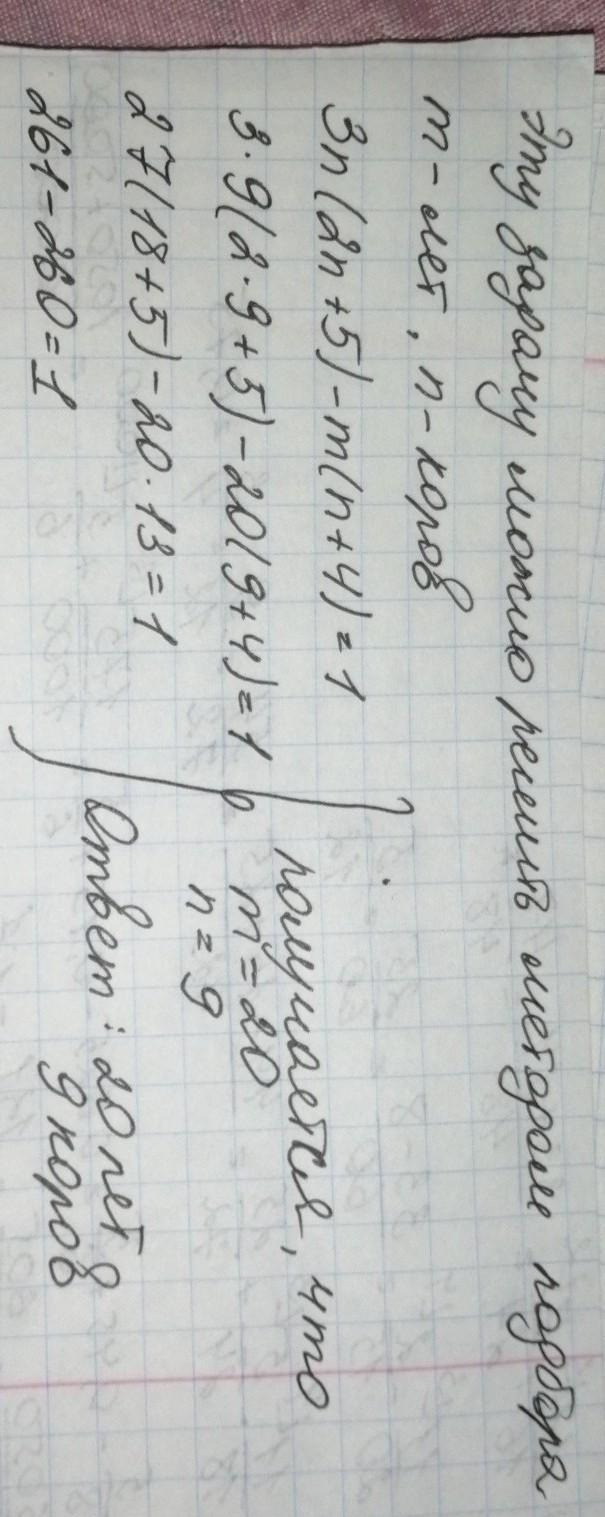 Эту задачу можно решить методом подбора
m - лет, n - коров
3n(2n+5) - m(n+4) = 1
3·9(2·9+5) - 20(9+4) = 1
27(18+5) - 20·13 = 1
261 - 260 = 1
получается, что
m = 20
n = 9
Ответ: 20 лет
9 коров